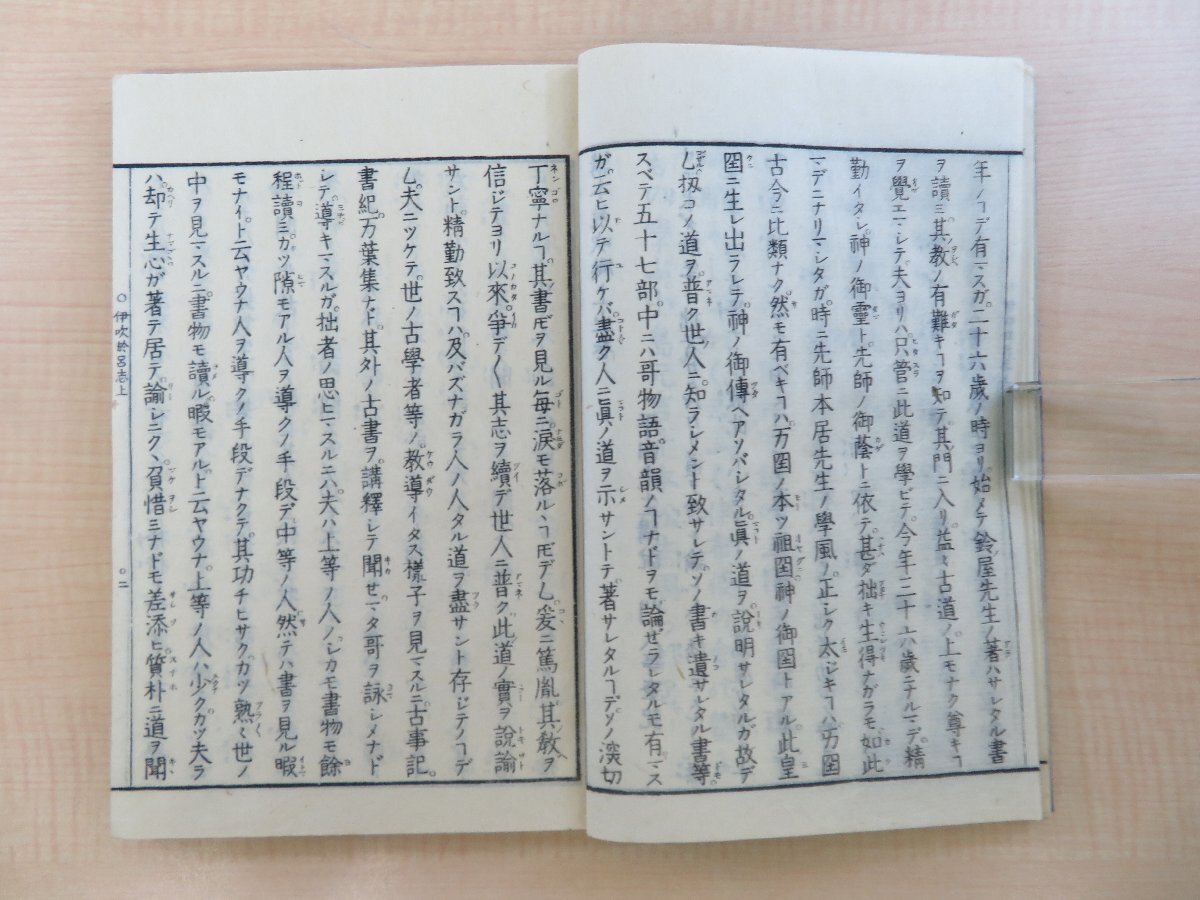 年ノヿデ有マスガ二十六歲ノ時ヨリ始メテ鈴屋先生ノ著ハサレタル書
ヲ讀ミ其教ノ有難キヿヲ知テ其門ニ入リ益々古道ノ上モナク尊キヿ
ヲ覺エマレテ夫ヨリハ只管ニ此道ヲ學ビテ今年三十六歲ニナルマデ精
勤イタシ神ノ御靈ト先師ノ御蔭トニ依テ甚ダ拙キ生得ナガラモ如此
マデニナリマシタガ時ニ先師本居先生ノ學風ノ正シク太ジキヿハ万國
古今ニ比類ナク然モ有ベキヿハ万國ノ本ツ祖國神ノ御國トアル此皇
國ニ生レ出ラレテ神ノ御傳ヘアソバシタル眞ノ道ヲ說明サレタルガ故デ
扨コノ道ヲ普ク世人ニ知ラシメント致サレテソノ書キ遺サレタル書等
スベテ五十七部中ニハ哥物語音韻ノヿナドヲモ論ゼラレタルモ有マス
ガ云ヒ以テ行ケバ盡ク人ニ眞ノ道ヲ示サントテ著サレタルヿデソノ深切
丁寧ナルヿ其書𪜈ヲ見ル每ニ淚モ落ルヽヿ𪜈デ爰ニ篤胤其教ヲ
信ジテヨリ以來爭デ〳〵其志ヲ續デ世人ニ普ク此道ノ實ヲ說諭
サント精勤致スヿハ及バズナガラ人ノ人タル道ヲ盡サント存ジテノヿデ
夫ニツケテ世ノ古學者等ノ教導イタス樣子ヲ見マスルニ古事記
書紀万葉集ナド其外ノ古書ヲ講釋シテ聞セマタ哥ヲ詠シメナド
シテ導キマスルガ拙者ノ思ヒマスルニハ夫ハ上等ノ人ノシカモ書物モ餘
程讀ミカツ隙モアル人ヲ導クノ手段デ中等ノ人然テハ書ヲ見ル暇
モナイト云ヤウナ人ヲ導クノ手段デナクテ其功チヒサクカツ熟々世ノ
中ヲ見マスルニ書物モ讀ル暇モアルト云ヤウナ上等ノ人ハ少クカツ夫ラ
ハ却テ生心ガ著テ居テ諭シニクヽ負惜ミナドモ差添ヒ質朴ニ道ヲ聞
伊吹於呂志上
二